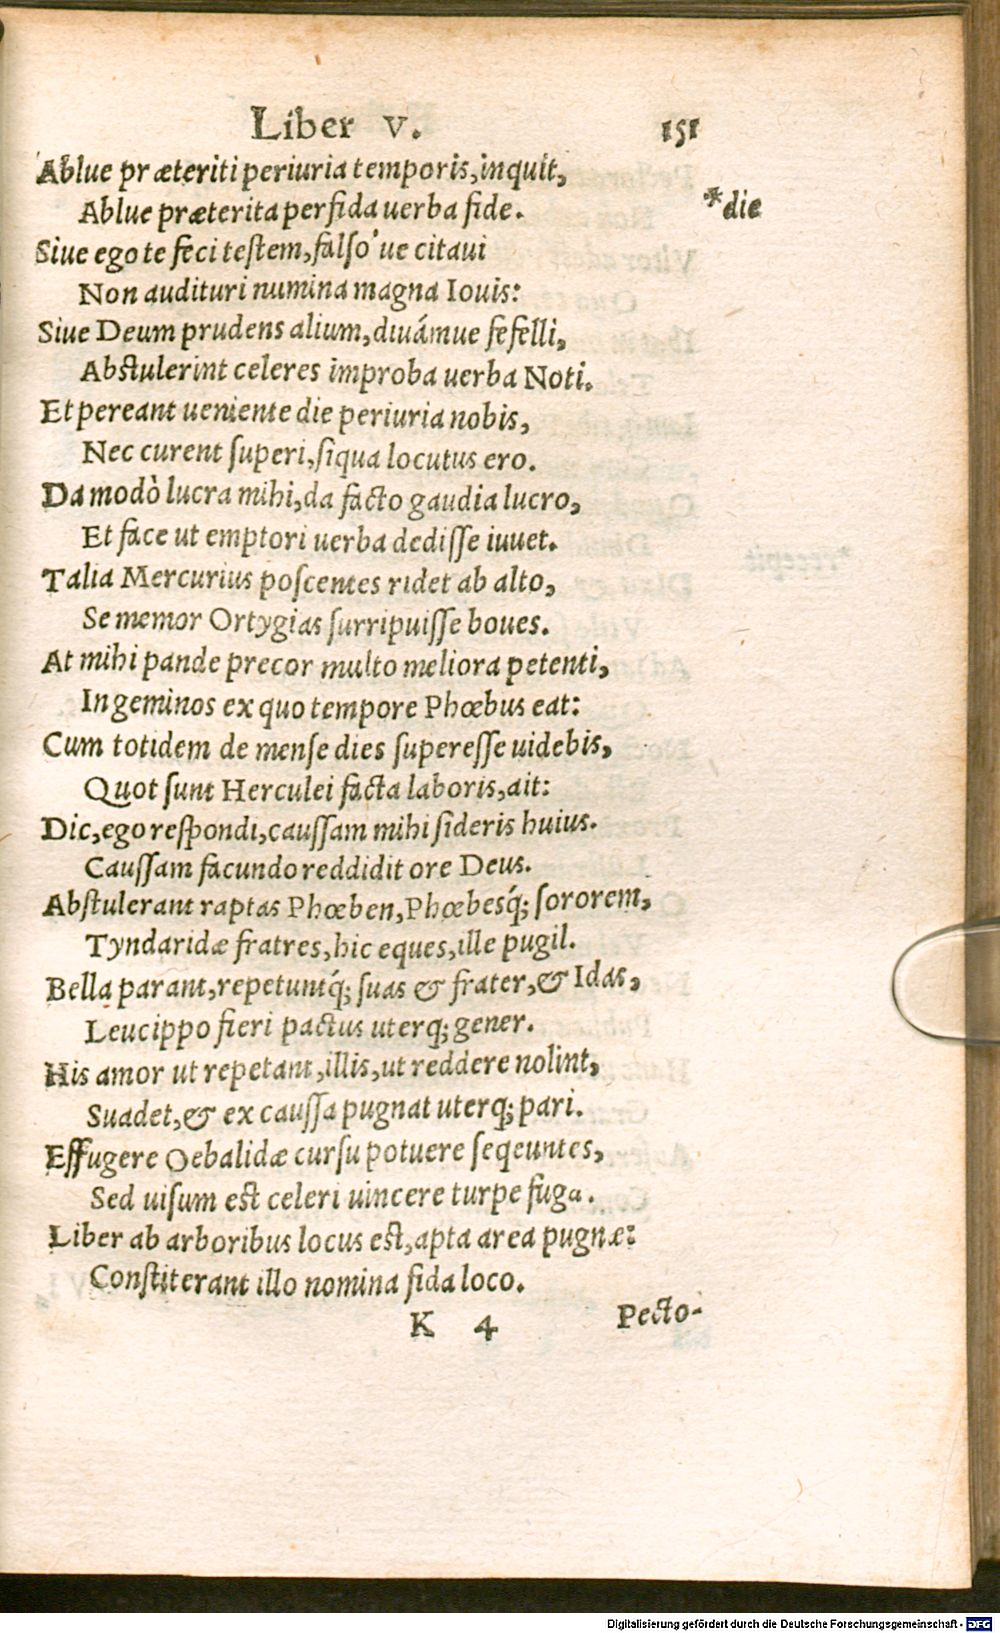 Liber V. 151
Ablue præteriti periuria temporis, inquit,
Ablue præterita perfida uerba fide. *die
Siue ego te feci testem, falso'ue citaui
Non audituri numina magna Iouis:
Siue Deum prudens alium, diuámue fefelli,
Abstulerint celeres improba uerba Noti.
Et pereant ueniente die periuria nobis,
Nec curent superi, siqua locutus ero.
Da modò lucra mihi, da facto gaudia lucro,
Et face ut emptori uerba dedisse iuuet.
Talia Mercurius poscentes ridet ab alto,
Se memor Ortygias surripuisse boues.
At mihi pande precor multo meliora petenti,
In geminos ex quo tempore Phœbus eat:
Cum totidem de mense dies superesse uidebis,
Quot sunt Herculei facta laboris, ait:
Dic, ego respondi, caussam mihi sideris huius.
Caussam facundo reddidit ore Deus.
Abstulerant raptas Phœben, Phœbesq́; sororem,
Tyndaridæ fratres, hic eques, ille pugil.
Bella parant, repetuntq́; suas & frater, & Idas,
Leucippo fieri pactus uterq; gener.
His amor ut repetant, illis, ut reddere nolint,
Suadet, & ex caussa pugnat uterq; pari.
Effugere Oebalidæ cursu potuere seqeuntes,
Sed uisum est celeri uincere turpe fuga.
Liber ab arboribus locus est, apta area pugnæ:
Constiterant illo nomina fida loco.
K 4 Pecto-
Digitalisierung gefördert durch die Deutsche Forschungsgemeinschaft - DFG